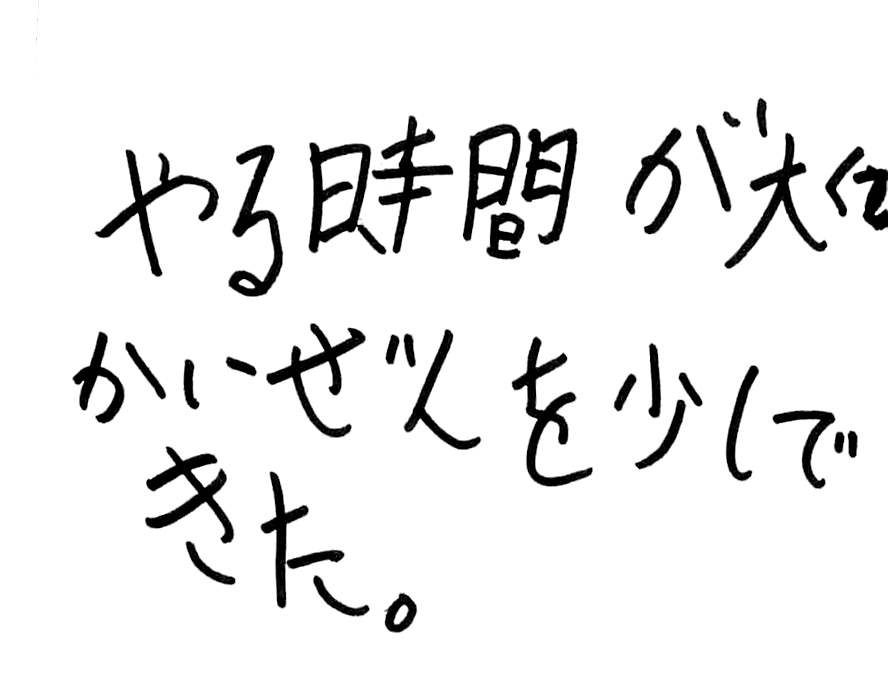 やる時間が大
かいぜんを少しで
きた。